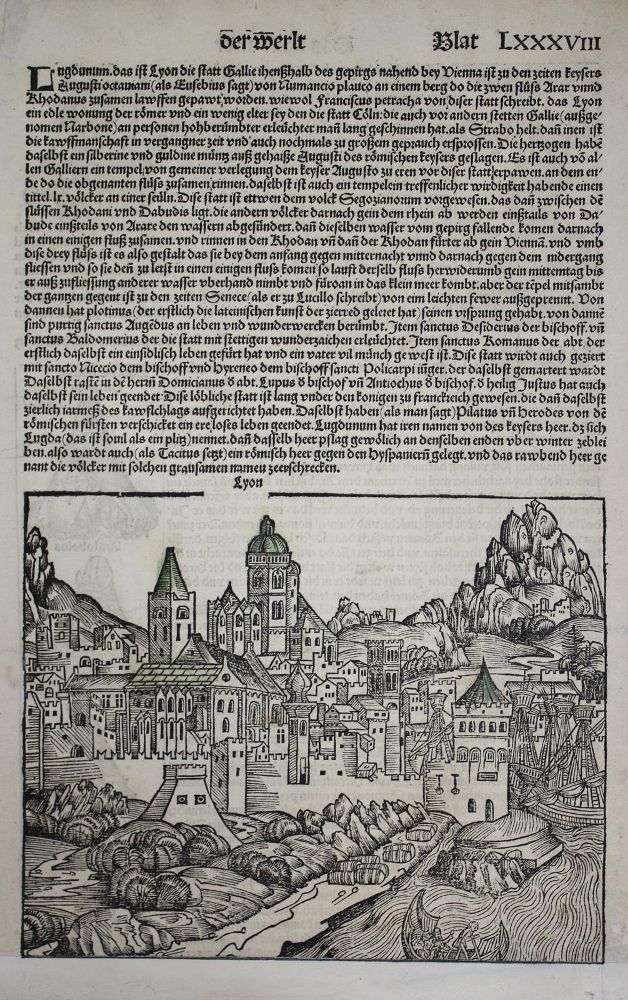 der werlt Blat LXXXVIII
Lugdunum. das ist Lyon die statt Gallie ihenßhalb des gepirgs nahend bey Vienna ist zu den zeiten keysers
Augusti octauiani (als Eusebius sagt) von Numancio plauco an einem berg do die zwen flüß Arar vnnd
Rhodanus zusamen lawffen gepawt worden. wiewol Franciscus petracha von diser statt schreibt. das Lyon
ein edle wonung der römer vnd ein wenig elter sey den die statt Cöln: die auch vor andern stetten Gallie (außge-
nomen Narbone) an personen hohberümbter erleüchter man̄ lang geschinnen hat. als Strabo helt. dan̄ inen ist
die kawffmanschaft in vergangner zeit vnd auch nochmals zu großem geprauch ersprossen. Die hertzogen habē
daselbst ein silberine vnd guldine müntz auß gehaiße Augusti des römischen keysers geslagen. Es ist auch vō al-
len Galliern ein tempel von gemeiner verlegung dem keyser Augusto zu eren vor diser statt erpawen. an dem en-
de do die obgenanten flüß zusamen rinnen. daselbst ist auch ein tempelein treffenlicher wirdigkeit habende einen
tittel. lx. völcker an einer seüln. Dise statt ist ettwen dem volck Segozianorum vorgewesen. das dan̄ zwischen dē
flüssen Khodani vnd Dabudis ligt. die andern völcker darnach gein dem rhein ab werden einßtails von Da-
bude einßteils von Arare den wassern abgesündert. dan̄ dieselben wasser vom gepirg fallende komen darnach
in einen einigen fluß zusamen. vnd rinnen in den Rhodan vn̄ dan̄ der Rhodan fürter ab gein Viennā. vnd vmb
dise drey flüß ist es also gestalt das sie bey dem anfang gegen mitternacht vnnd darnach gegen dem nidergang
fliessen vnd so sie den̄ zu letst in einen einigen fluß komen so lauft derselb fluß herwiderumb gein mittemtag bis
er auß zufliessung anderer wasser vberhand nimbt vnd füroan in das klein meer kombt. aber der tēpel mitsambt
der gantzen gegent ist zu den zeiten Senece (als er zu Lucillo schreibt) von eim leichten fewer außgeprennt. Von
dannen hat plotinus (der erstlich die lateinischen kunst der zierred geleret hat) seinen vrsprung gehabt. von dannē
sind pürtig sanctus Augēdus an leben vnd wunderwercken berümbt. Item sanctus Desiderius der bischoff. vn̄
sanctus Baldomerius der die statt mit stettigen wunderzaichen erleüchtet. Item sanctus Romanus der abt. der
erstlich daselbst ein einsidlisch leben gefürt hat vnd ein vater vil münch gewest ist. Dise statt wirdt auch geziert
mit sancto Niceto dem bischoff vnd Hyreneo dem bischoff sancti Policarpi iüger. der daselbst gemartert wardt
Daselbst rastē in dē herrn̄ Domicianus d̄ abt. Lupus d̄ bischof vn̄ Antiochus d̄ bischof. d̄ heilig Justus hat auch
daselbst sein leben geendet. Dise löbliche statt ist lang vnder den konigen zu franckreich gewesen. die dan̄ daselbst
zierlich iarmeß des kawflichlags aufgerichtet haben. Daselbst haben (als man sagt) Pilatus vn̄ Herodes von dē
römischen fürsten verschicket ein ere loses leben geendet. Lugdunum hat iren namen von des keysers heer. dz sich
Lugda (das ist souil als ein plitz) nennet. dan̄ dasselb heer pflag gewōlich an denselben enden vber winter ze blei-
ben. also wardt auch (als Tacitus setzt) ein römisch heer gegen den Hyspaniern̄ gelegt. vnd das rawbend heer ge
nant die völcker mit solchen grausamen namen zeerschrecken.
Lyon